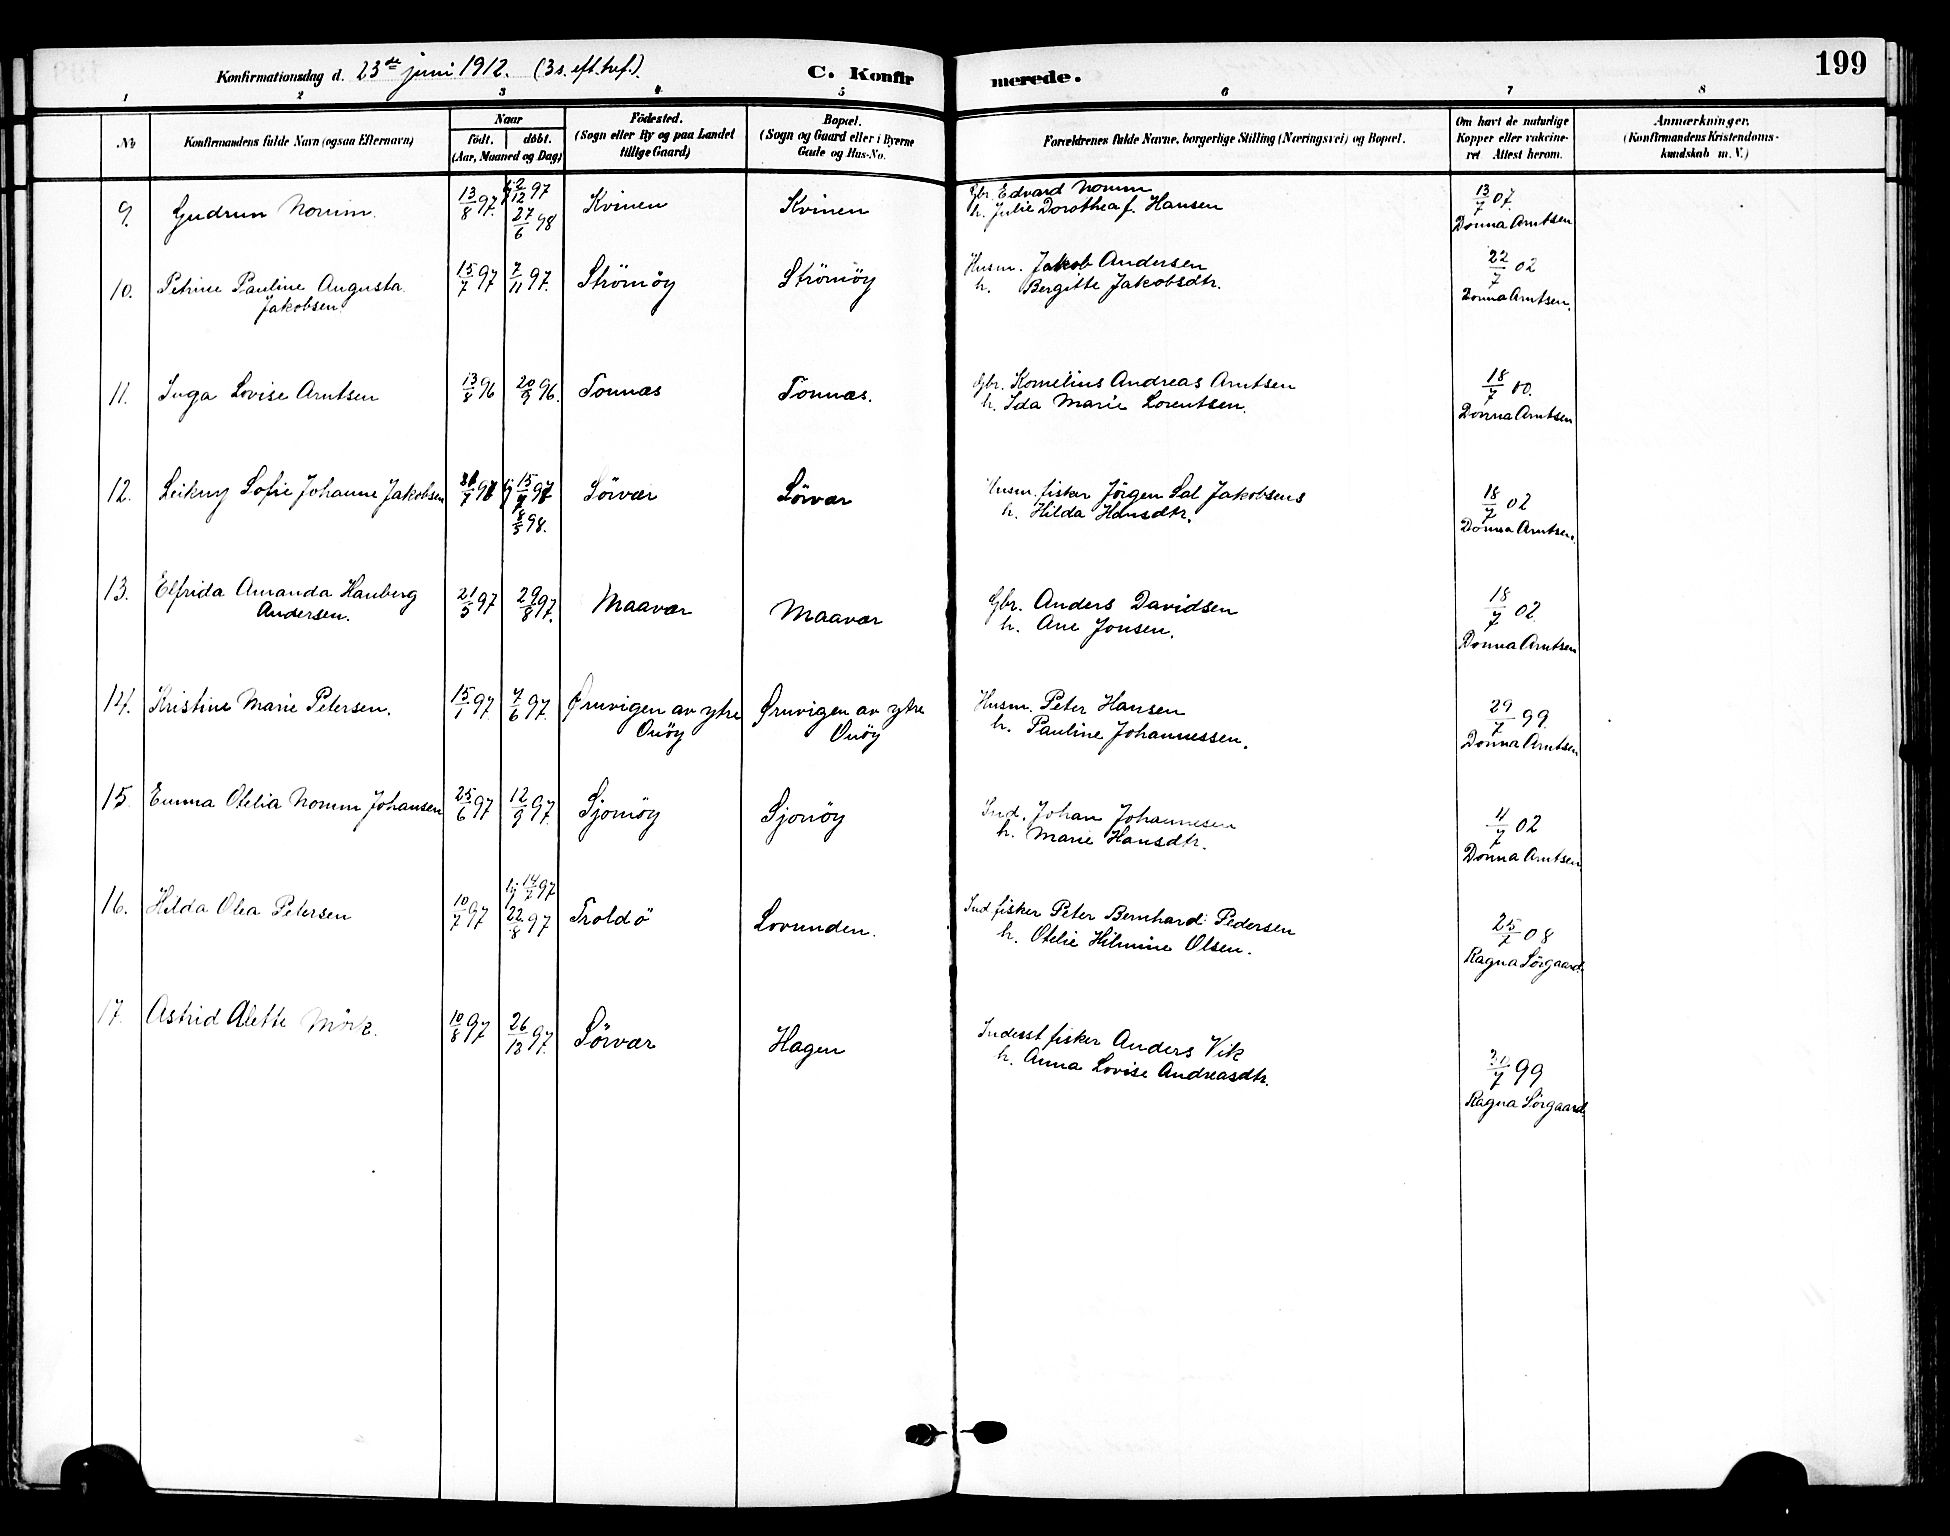 199
Konfirmationsdag d. 23de juni 1912. (3 s. eft. tref.) C. Konfirmerede.
1 2 3 4 5 6 7 8
No Konfirmandens fulde Navn (ogsaa Efternavn) Naar födt. döbt. (Aar, Maaned og Dag) Födested. (Sogn eller By og paa Landet tillige Gaard) Bopæl. (Sogn og Gaard eller i Byerne Gade og Hus-No. Forældrenes fulde Navne, borgerlige Stilling (Næringsvei) og Bopæl. Om havt de naturlige Kopper eller vakcineret Attest herom. Anmærkninger. (Konfirmandens Kristendomskundskab m.V.)
9. Gudrun Nomm. 13/8 97. hj 2/12 97 27/6 98 Kvinen Kvinen Gbr. Edvard Nomm 13/7 07.
h. Julie Dorothea f. Hansen Donna Arntsen
10. Petrine Pauline Augusta 15/7 97 7/11 97. Strömöy Strömöy Husm. Jakob Andersen 22/7 02
Jakobsen h. Bergitte Jakobsdtr. Donna Arntsen.
11. Inga Lovise Arntsen 13/8 96 20/9 96. Tonnæs Tonnæs. Gbr. Kornelius Andreas Arntsen 18/7 00.
h. Ida Marie Lorentsen. Donna Arntsen
12. Leikny Sofie Johanne Jakobsen 97 hj 15 97 8/5 98. Sörvær Sörvær Husm. fisker Jörgen Sal Jakobsens 18/7 02
h. Hilda Hansdtr. Donna Arntsen.
13. Elfrida Amanda Hanberg 21/5 97 29/8 97. Maavær Maavær Gbr. Anders Davidsen 18/7 02.
Andersen. h. Ane Jonsen. Donna Arntsen
14. Kristine Marie Petersen. 15/1 97 7/6 97. Ørnvigen av ytre Ørnvigen av ytre Husm. Peter Hansen 29/7 99.
Onöy Onöy h. Pauline Johannessen. Donna Arntsen
15. Emma Otelia Nomm Johansen 25/6 97 12/9 97. Sjonöy Sjonöy Ind. Johan Johannesen 4/7 02
h. Marie Hansdtr. Donna Arntsen
16. Hilda Olea Petersen 10/7 97 hj 14/7 97 22/8 97 Troldö Lovunden. Ind. fisker Peter Bernhard Pedersen 25/7 08
h. Otelie Hilmine Olsen. Ragna Sörgaard.
17. Astrid Alette Mörk. 10/8 97 26/12 97. Sörvær Hagen Inderst fisker Anders Vik 20/7 99
h. Anna Lovise Andreasdtr. Ragna Sörgaard.